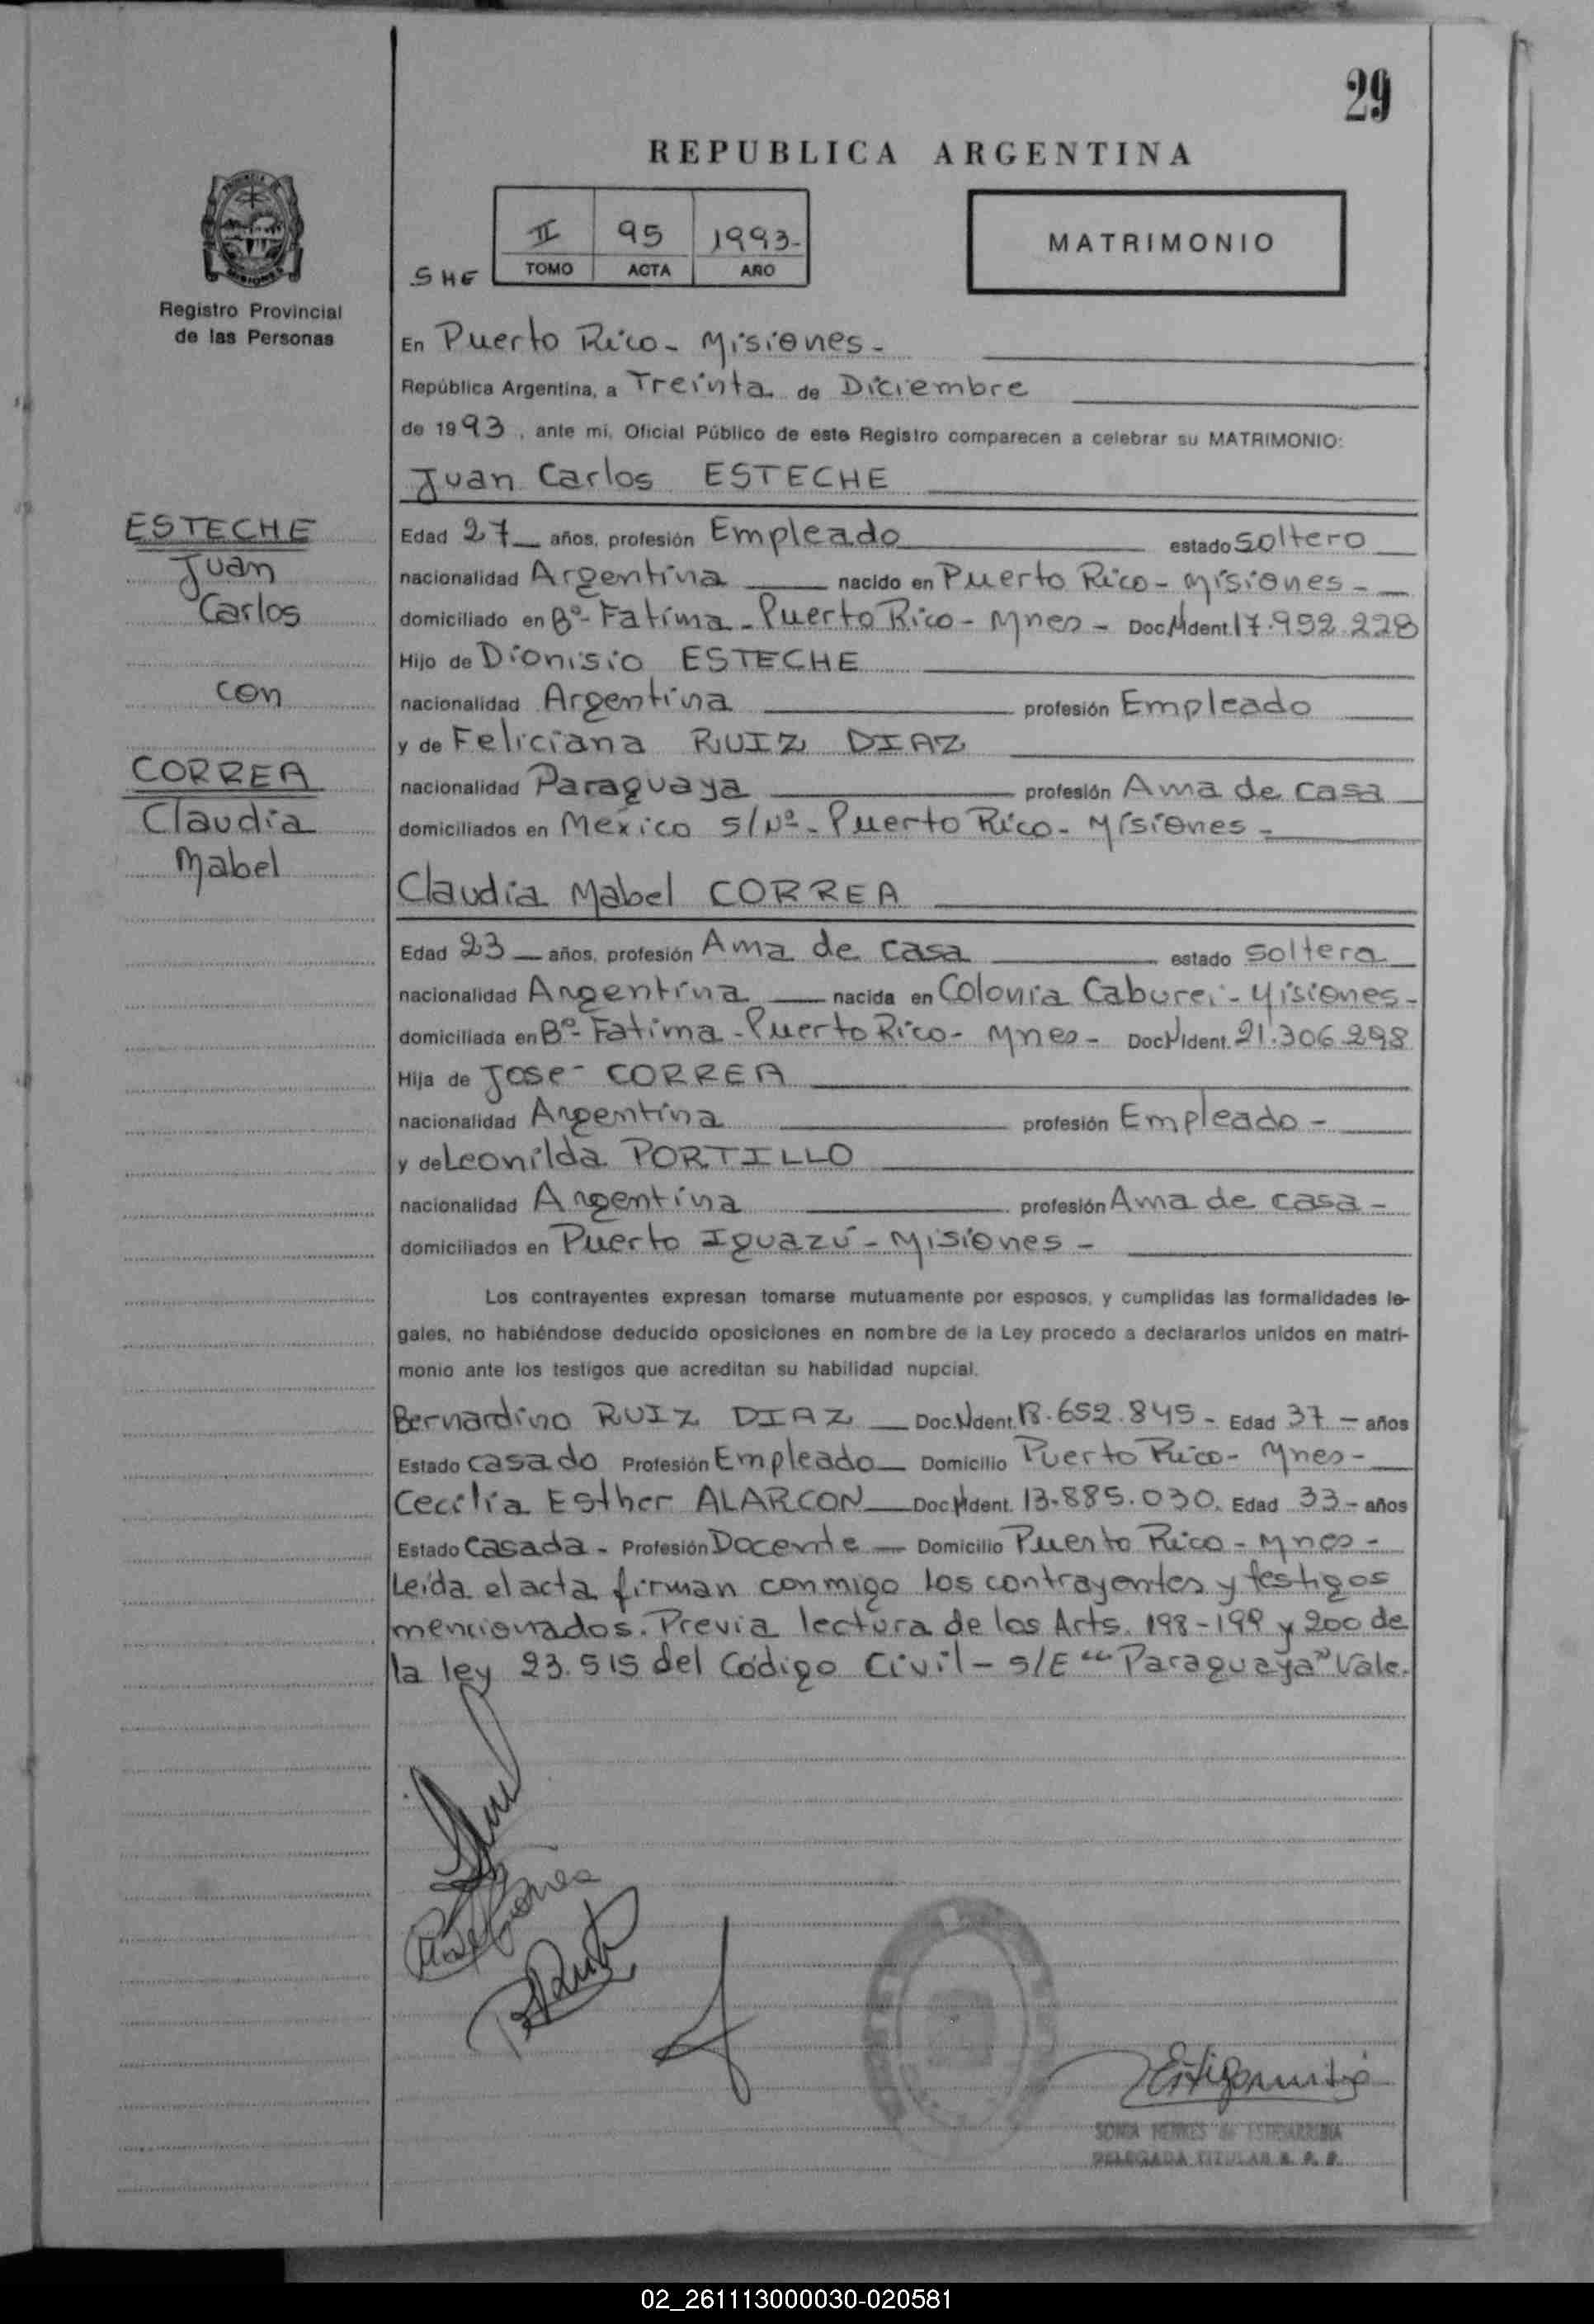 29
REPUBLICA ARGENTINA
II 95 1993-
TOMO ACTA AÑO
SHE
MATRIMONIO
Registro Provincial
de las Personas
En Puerto Rico - Misiones -
República Argentina, a Treinta de Diciembre
de 1993, ante mi, Oficial Público de este Registro comparecen a celebrar su MATRIMONIO:
Juan Carlos ESTECHE
ESTECHE
Juan
Carlos
con
CORREA
Claudia
Mabel
Edad 27 años, profesión Empleado estado Soltero
nacionalidad Argentina nacido en Puerto Rico - Misiones -
domiciliado en Bº- Fatima - Puerto Rico - Mnes - Doc. Ident. 17.952.228
Hijo de Dionisio ESTECHE
nacionalidad Argentina profesión Empleado
y de Feliciana RUIZ DIAZ
nacionalidad Paraguaya profesión Ama de casa
domiciliados en México S/Nº - Puerto Rico - Misiones -
Claudia Mabel CORREA
Edad 23 años, profesión Ama de casa estado Soltera
nacionalidad Argentina nacida en Colonia Caburei - Misiones -
domiciliada en Bº- Fatima - Puerto Rico - Mnes - Doc. Ident. 21.306.298
Hija de Jose CORREA
nacionalidad Argentina profesión Empleado -
y de Leonilda PORTILLO
nacionalidad Argentina profesión Ama de casa -
domiciliados en Puerto Iguazú - Misiones -
Los contrayentes expresan tomarse mutuamente por esposos, y cumplidas las formalidades le-
gales, no habiéndose deducido oposiciones en nombre de la Ley procedo a declararlos unidos en matri-
monio ante los testigos que acreditan su habilidad nupcial.
Bernardino RUIZ DIAZ Doc. Ident. .652.845 - Edad 37 - años
Estado casado Profesión Empleado Domicilio Puerto Rico - Mnes -
Cecilia Esther ALARCON Doc. Ident. 13.885.030. Edad 33 - años
Estado Casada - Profesión Docente Domicilio Puerto Rico - Mnes -
Leída el acta firman conmigo los contrayentes y testigos
mencionados. Previa lectura de los Arts. 198 - 199 y 200 de
la ley 23.515 del Código Civil - S/E "Paraguaya" Vale.
SONIA HENKES de ESTIGARRIBIA
DELEGADA TITULAR R. P. P.
02_261113000030-020581